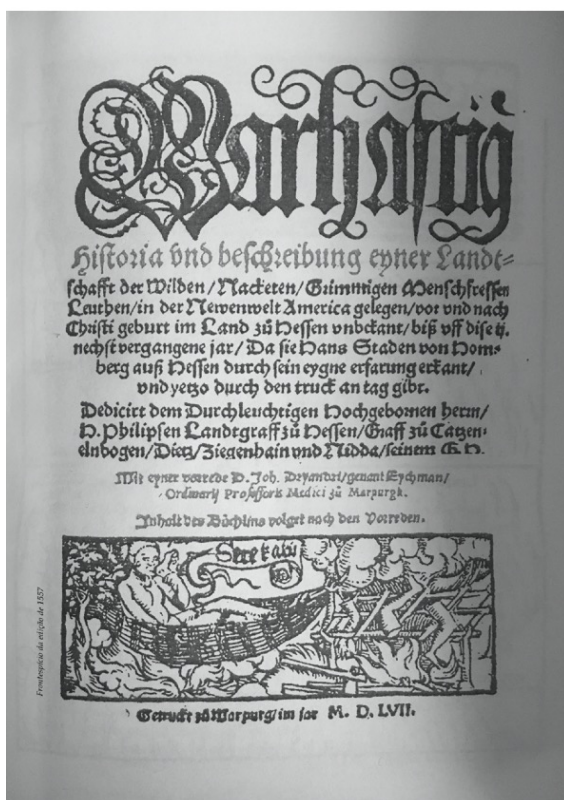 Warhaftig
Historia vnd beschreibung eyner Landt=
schafft der Wilden/Nacketen/Grimmigen Menschfresser
Leuthen/in der Newenwelt America gelegen/vor vnd nach
Christi geburt im Land zů Hessen vnbekant/biß vff dise ij.
nechst vergangene jar/Da sie Hans Staden von Hom-
berg auß Hessen durch sein eygne erfarung erkant/
vnd yetzo durch den truck an tag gibt.
Dedicirt dem Durchleuchtigen Hochgebornen herrn/
H. Philipsen Landtgraff zů Hessen/Graff zů Catzen-
elnbogen/Dietz/Ziegenhain vnd Nidda/seinem G. H.
Mit eyner vorrede D. Joh. Dryandri/genant Eychman/
Ordinarij Professoris Medici zů Marpurgk.
Inhalt des Büchlins volget nach den Vorreden.
Sete katu
Getruckt zů Marpurg/im jar M. D. LVII.
Frontespício da edição de 1557